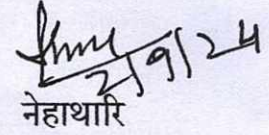 2/9/24
नेहाथारि